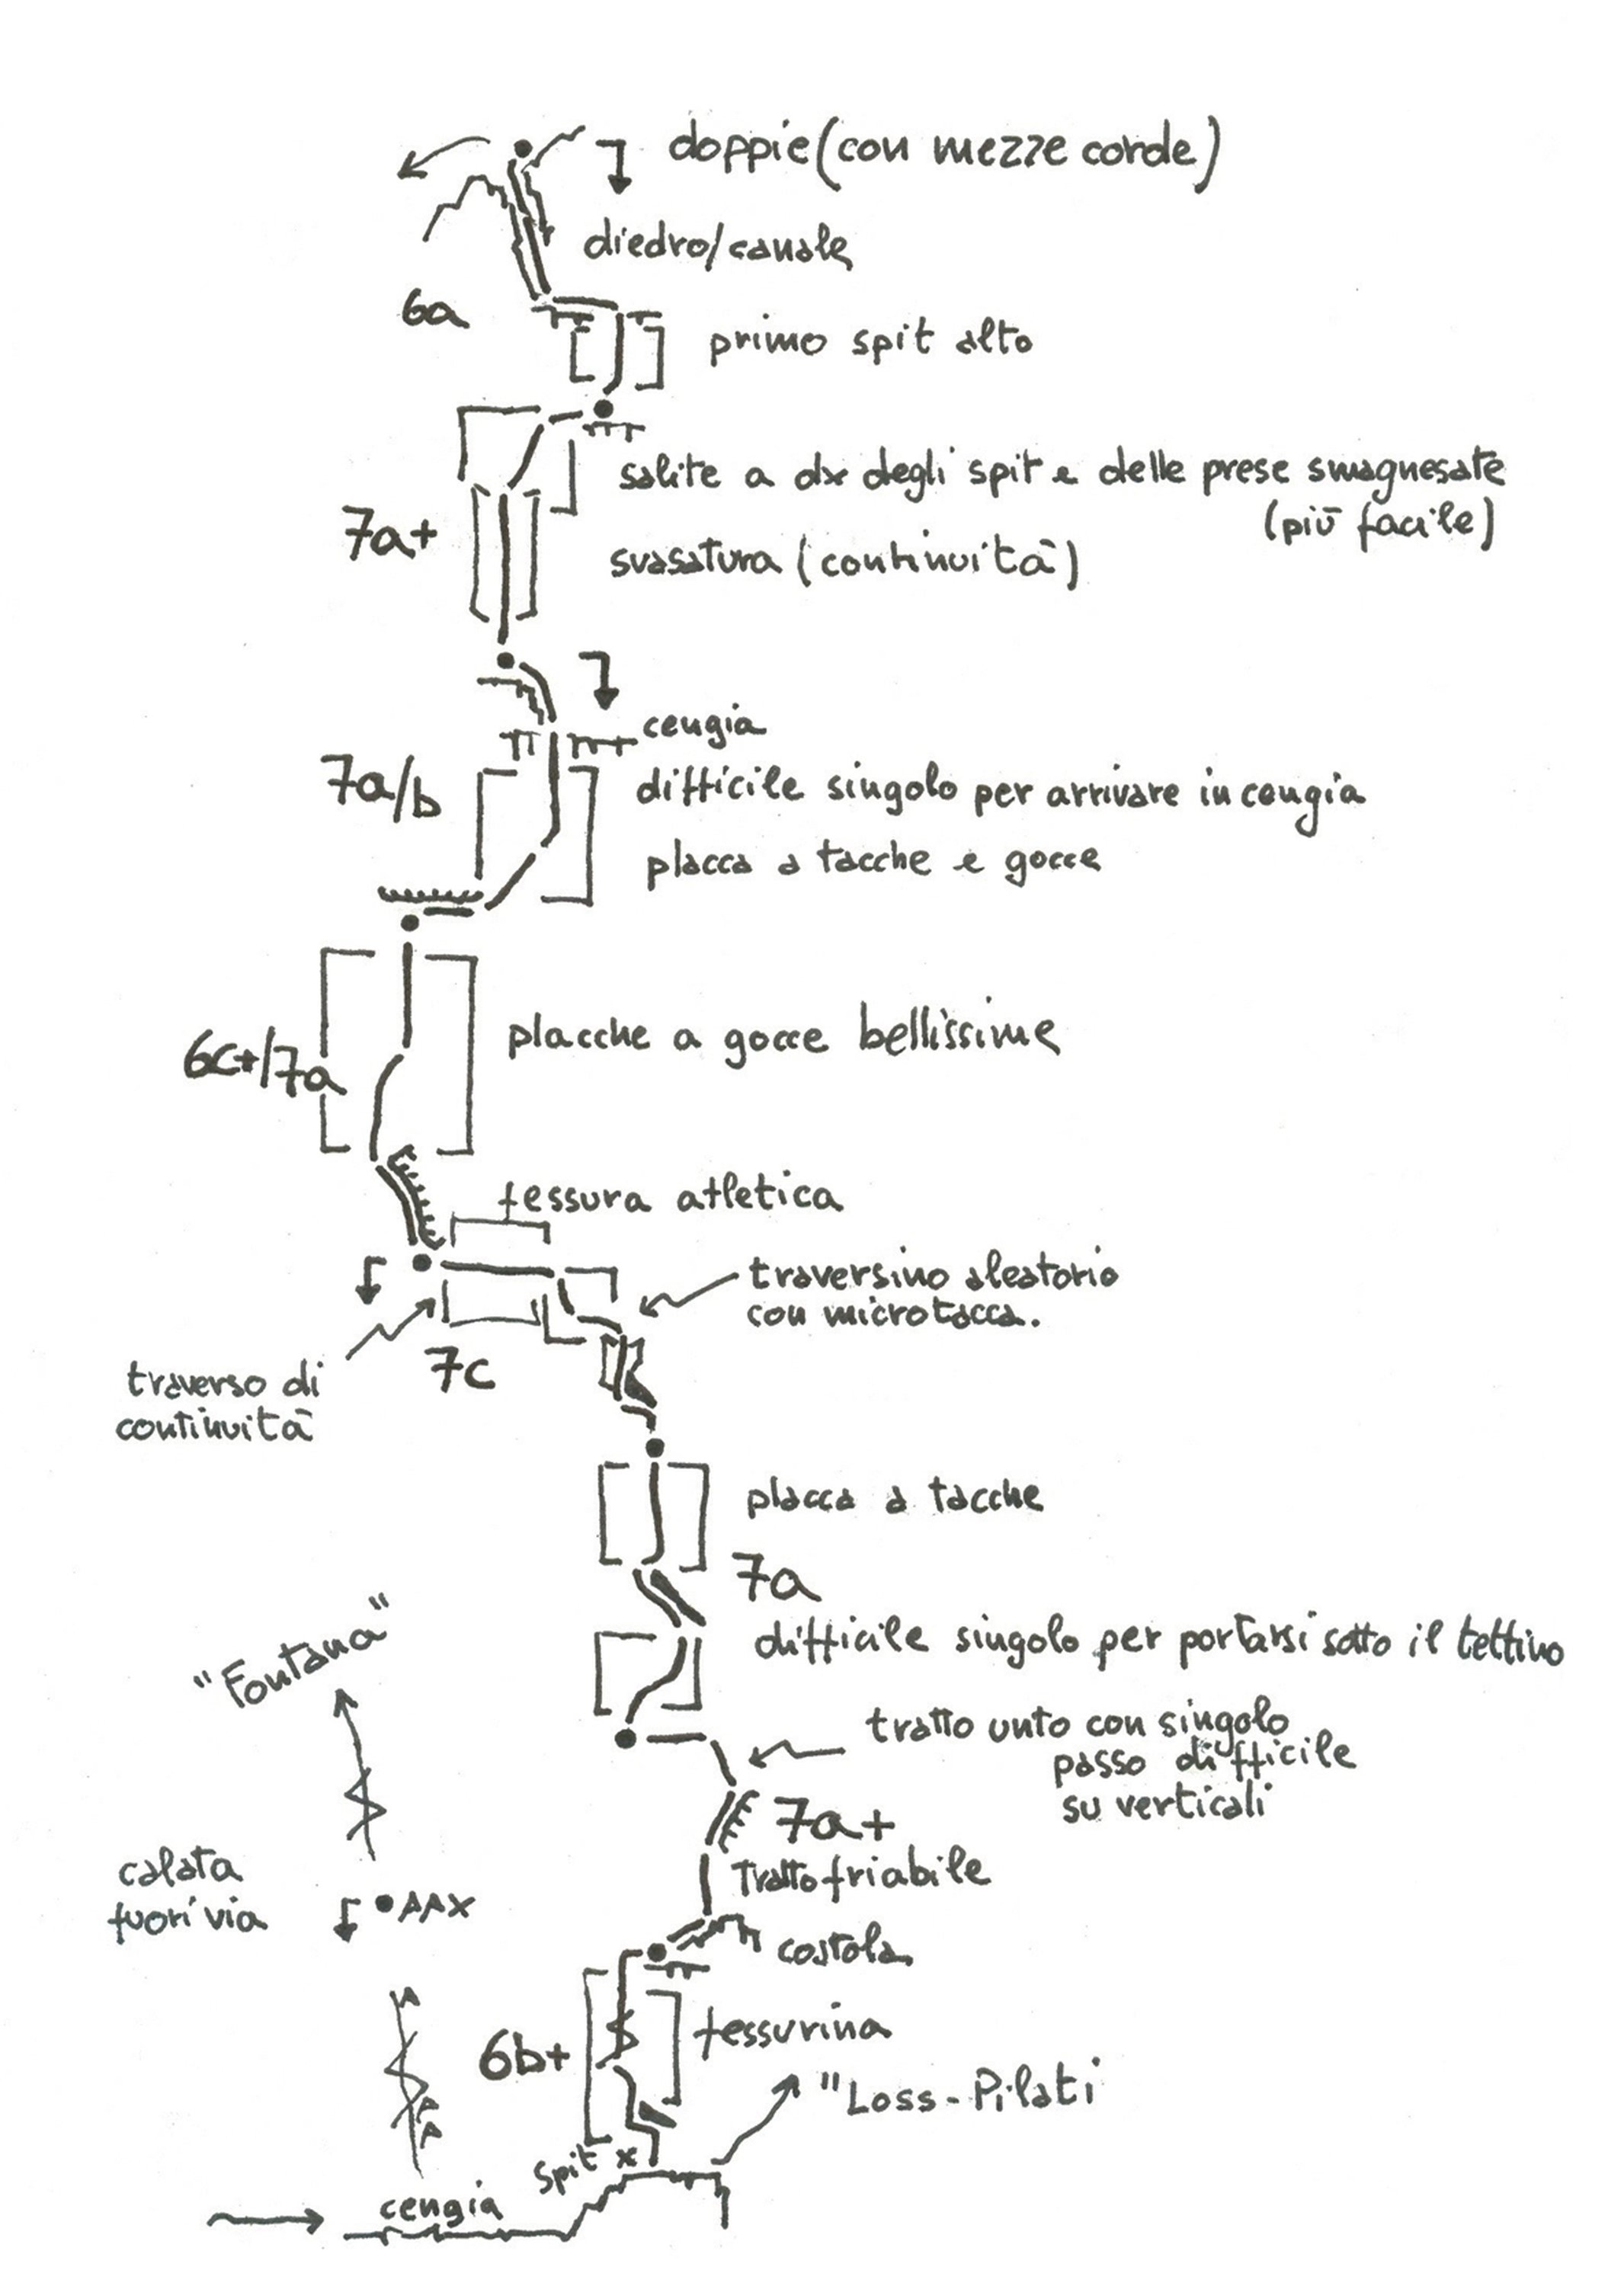 doppie (con mezze corde)
diedro/canale
6a
primo spit alto
salite a dx degli spit e delle prese smagnesate
(più facile)
7a+
svasatura (continuità)
cengia
7a/b
difficile singolo per arrivare in cengia
placca a tacche e gocce
placche a gocce bellissime
6c+/7a
fessura atletica
traversino aleatorio
con microtacca.
7c
traverso di
continuità
placca a tacche
7a
difficile singolo per portarsi sotto il tettino
"Fontana"
tratto unto con singolo
passo difficile
su verticali
7a+
Tratto friabile
calata
fuori via
costola
fessurina
6b+
"Loss-Pilati
Spit x
cengia